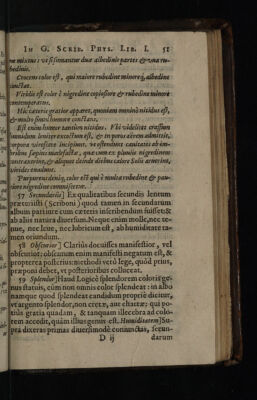 IN G. SCRIB. PHYS. LIB. I. 51
ne mixtus: vt si sumantur duæ albedinis partes & vna ru-
bedinis.
Croceus color est, qui maiore rubedine minoreq́; albedine
Viridis est color è nigredine copiosiore & rubedine minore
contemperatus.
Hic cæteris gratior apparet, quoniam omnino nitidus est,
& multo simul humore constans.
Est enim humor tantùm nitidus. Vbi videlicet crassum
humidum leuiter exustum est, & in poros aërem admittit,
corpora virescere incipiunt. vt ostendunt
bribus sæpius
contraxerint, & aliquot deinde diebus calore Solis
virides euadunt.
Purpureus deniq; color est qui è multa rubedine & pau-
ciore nigredine commiscetur.
57 Secundariis] Ex qualitatibus secundis leorum
præturisti (Scriboni) quod tamen in secundarum
album partiure cum cæteris inseribendum fuisset: &
ab aliis natura diuersum. Neque enim molle, nec te-
nue, nec leue, nec lubricum est, ab humiditate ta-
men oriundum.
58 Obscurior] Clariùs docuisses manifestior, vel
obscurior: obscurum enim manifesti negatum est, &
propterea posterius: methodi verò lege, quod prius,
præponi debet, vt posterioribus colluceat.
59 Splendor] Haud Logicè splendorem coloris ge-
nus statuis, cùm non omnis color splendeat: in albo
namque quod splendeat candidum propriè dicitur,
vt argento splendor, non cretæ, aut chartæ: qui po-
tiùs gratia quadam, & tanquam illecebra ad colo-
rem accedit, quàm illius genus est. Humiditatem] Su-
pra dixeras primas diuersimodè coniunctas, secun-
D ij darum